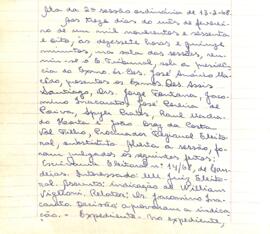 Ata da 2ª sessão ordinária de 13-2-68.
Aos treze dias do mês de feverei-
ro de um mil novecentos e sessenta
e oito, às dezessete horas e quinze
minutos, na sala das sessões, reu-
niu-se o E. Tribunal, sob a presidên-
cia do Exmo. Sr. Des. José Amério Ma-
chado, presentes os Exmos. Des. Assis
Santiago, Drs. Jorge Fontana, Jaro-
nimo Inacarato, José Pereira de
Paiva, Raul Macha-
do Horta e João Braz da Costa
Val Filho, Procurador Regional Eleito-
ral, substituto. Aberta a sessão, fo-
ram julgados os seguintes feitos:
nº 14/68, de
Interessado: MM. Juiz Eleito-
ral. Assunto: indicação de William
Relator: Dr. Jeronimo Ina-
carato. Decisão: aprovaram a indica-
ção. - Expediente - No expediente,